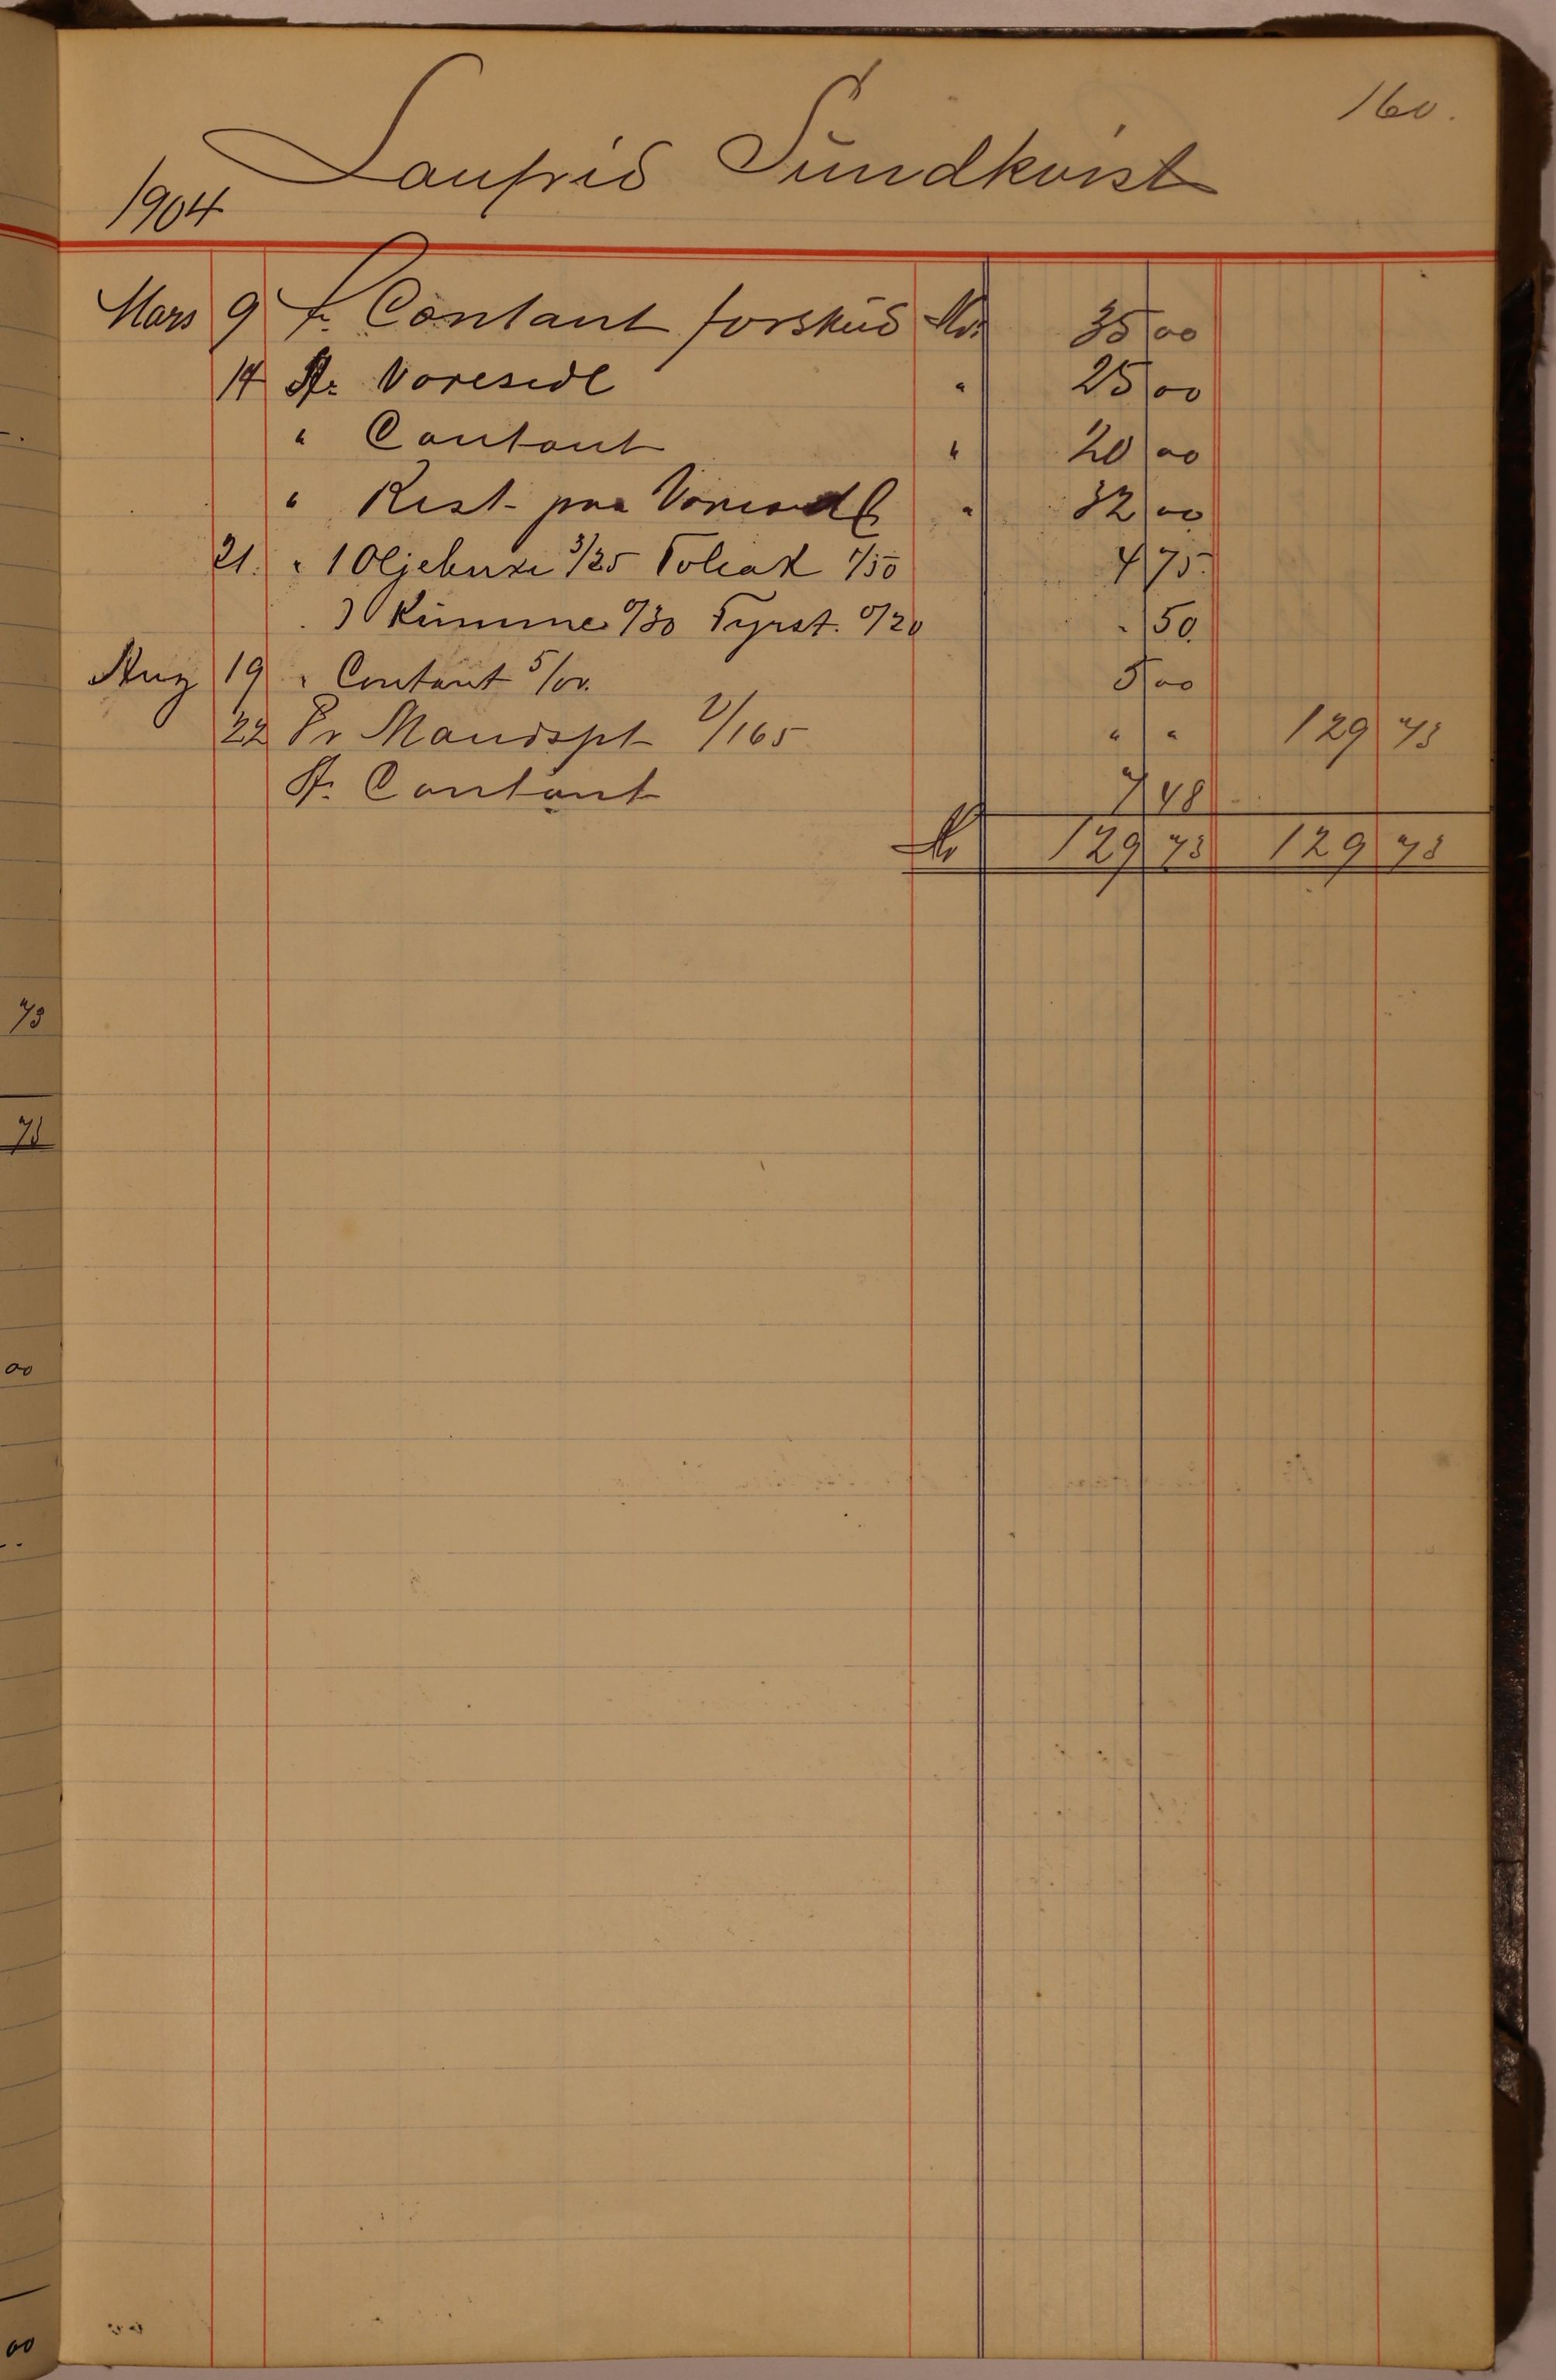 160.
Laufrid Sundkvist
1904
Mars 9 t. Contant forskud Kr. 35 00
14 At. Voresedl " 25 00
" Contant " 20 00
" Rest paa " 32 00
21. " 1 Oljebuxe 3/25 Tobak 1/50 4 75
Kumme 0/30 Fyrst. 0/20 " 50
Aug 19 " Contant 5/00. 5 00
22 Pr Mandspt V/165 " " 129 73
At. Contant 7 48
Kr 129 73 129 73
73
73
00
00